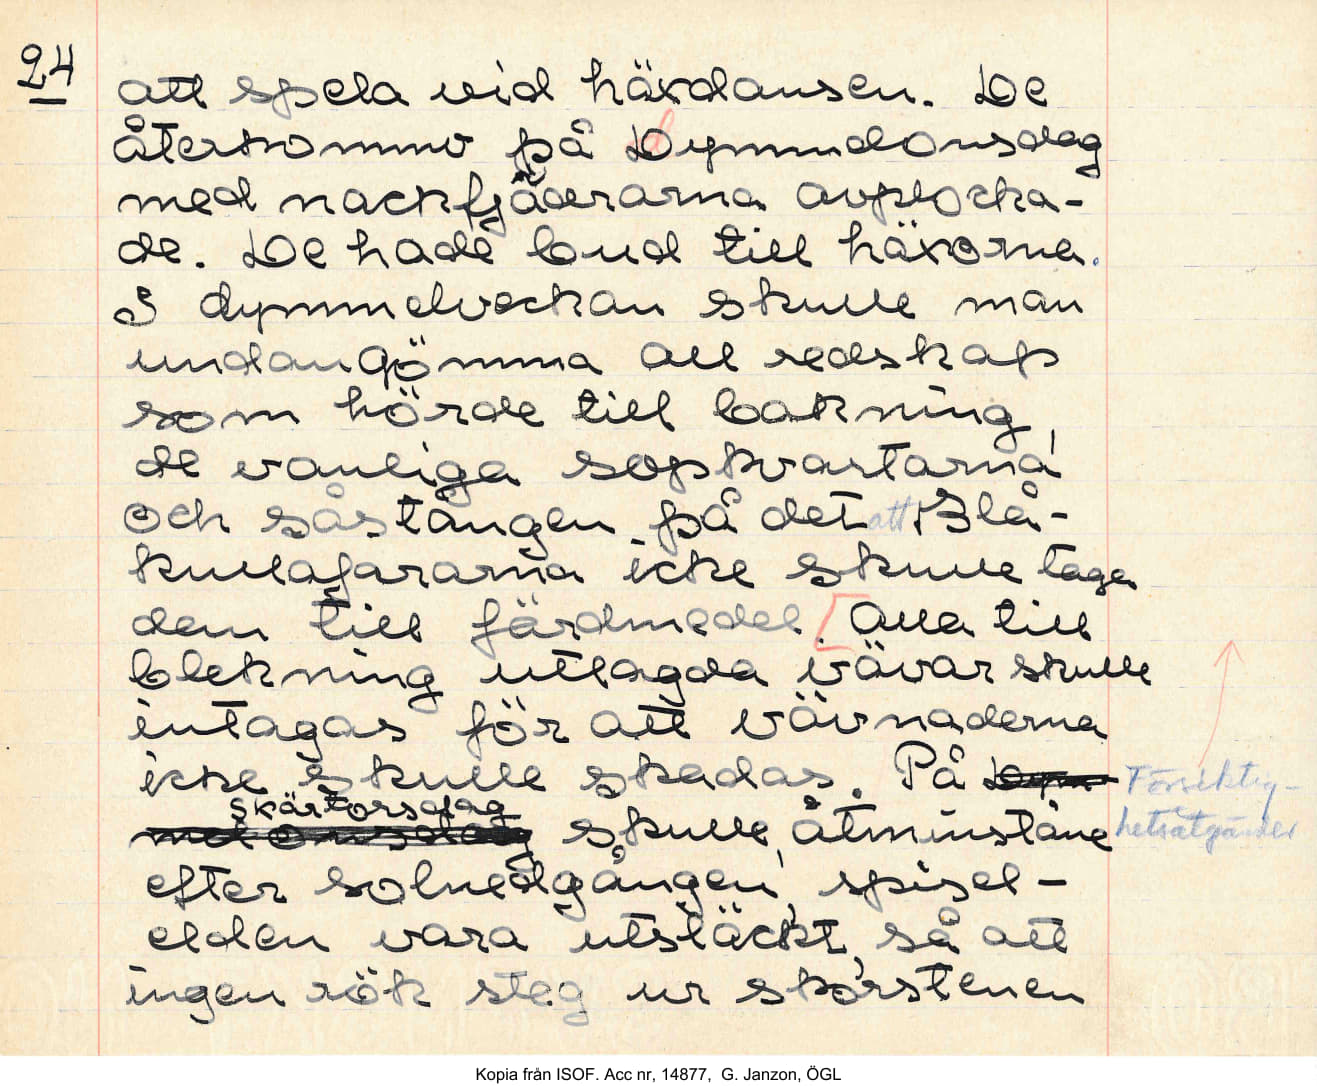 24
att spela vid häxdansen. De
återkommo på Dymmdonsdag
med nackfjäderarna avplocka-
de. De hade bud till häxorna.
I dymmelveckan skulle man
undangömma all redskap
som hörde till bakning,
de vanliga sopkvastarna
och såstången på det att Blå-
kullafararna icke skulle taga
dem till färdmedel. Alla till
blekning utlagda vävar skulle
intagas för att vävnaderna
icke skulle skadas. På Dym
skärtorsdag
melonsdag skulle, åtminstone
efter solnedgången, spisel-
elden vara utsläckt, så att
ingen rök steg ur skorstenen
Försiktig-
hetsåtgärder
Kopia från ISOF. Acc nr, 14877, G. Janzon, ÖGL